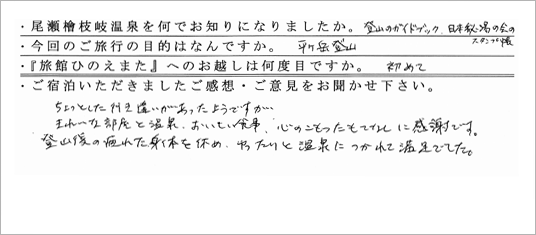 ・尾瀬檜枝岐温泉を何でお知りになりましたか。 登山のガイドブック、日本秘湯の会の
スタンプ帳
・今回のご旅行の目的はなんですか。 平ヶ岳登山
・『旅館ひのえまた』へのお越しは何度目ですか。 初めて
・ご宿泊いただきましたご感想・ご意見をお聞かせ下さい。
ちょっとした行き違いがあったようですが…
きれいな部屋と温泉、おいしい食事、心のこもったもてなしに感謝です。
登山後の疲れた身体を休め、ゆったりと温泉につかれて満足でした。